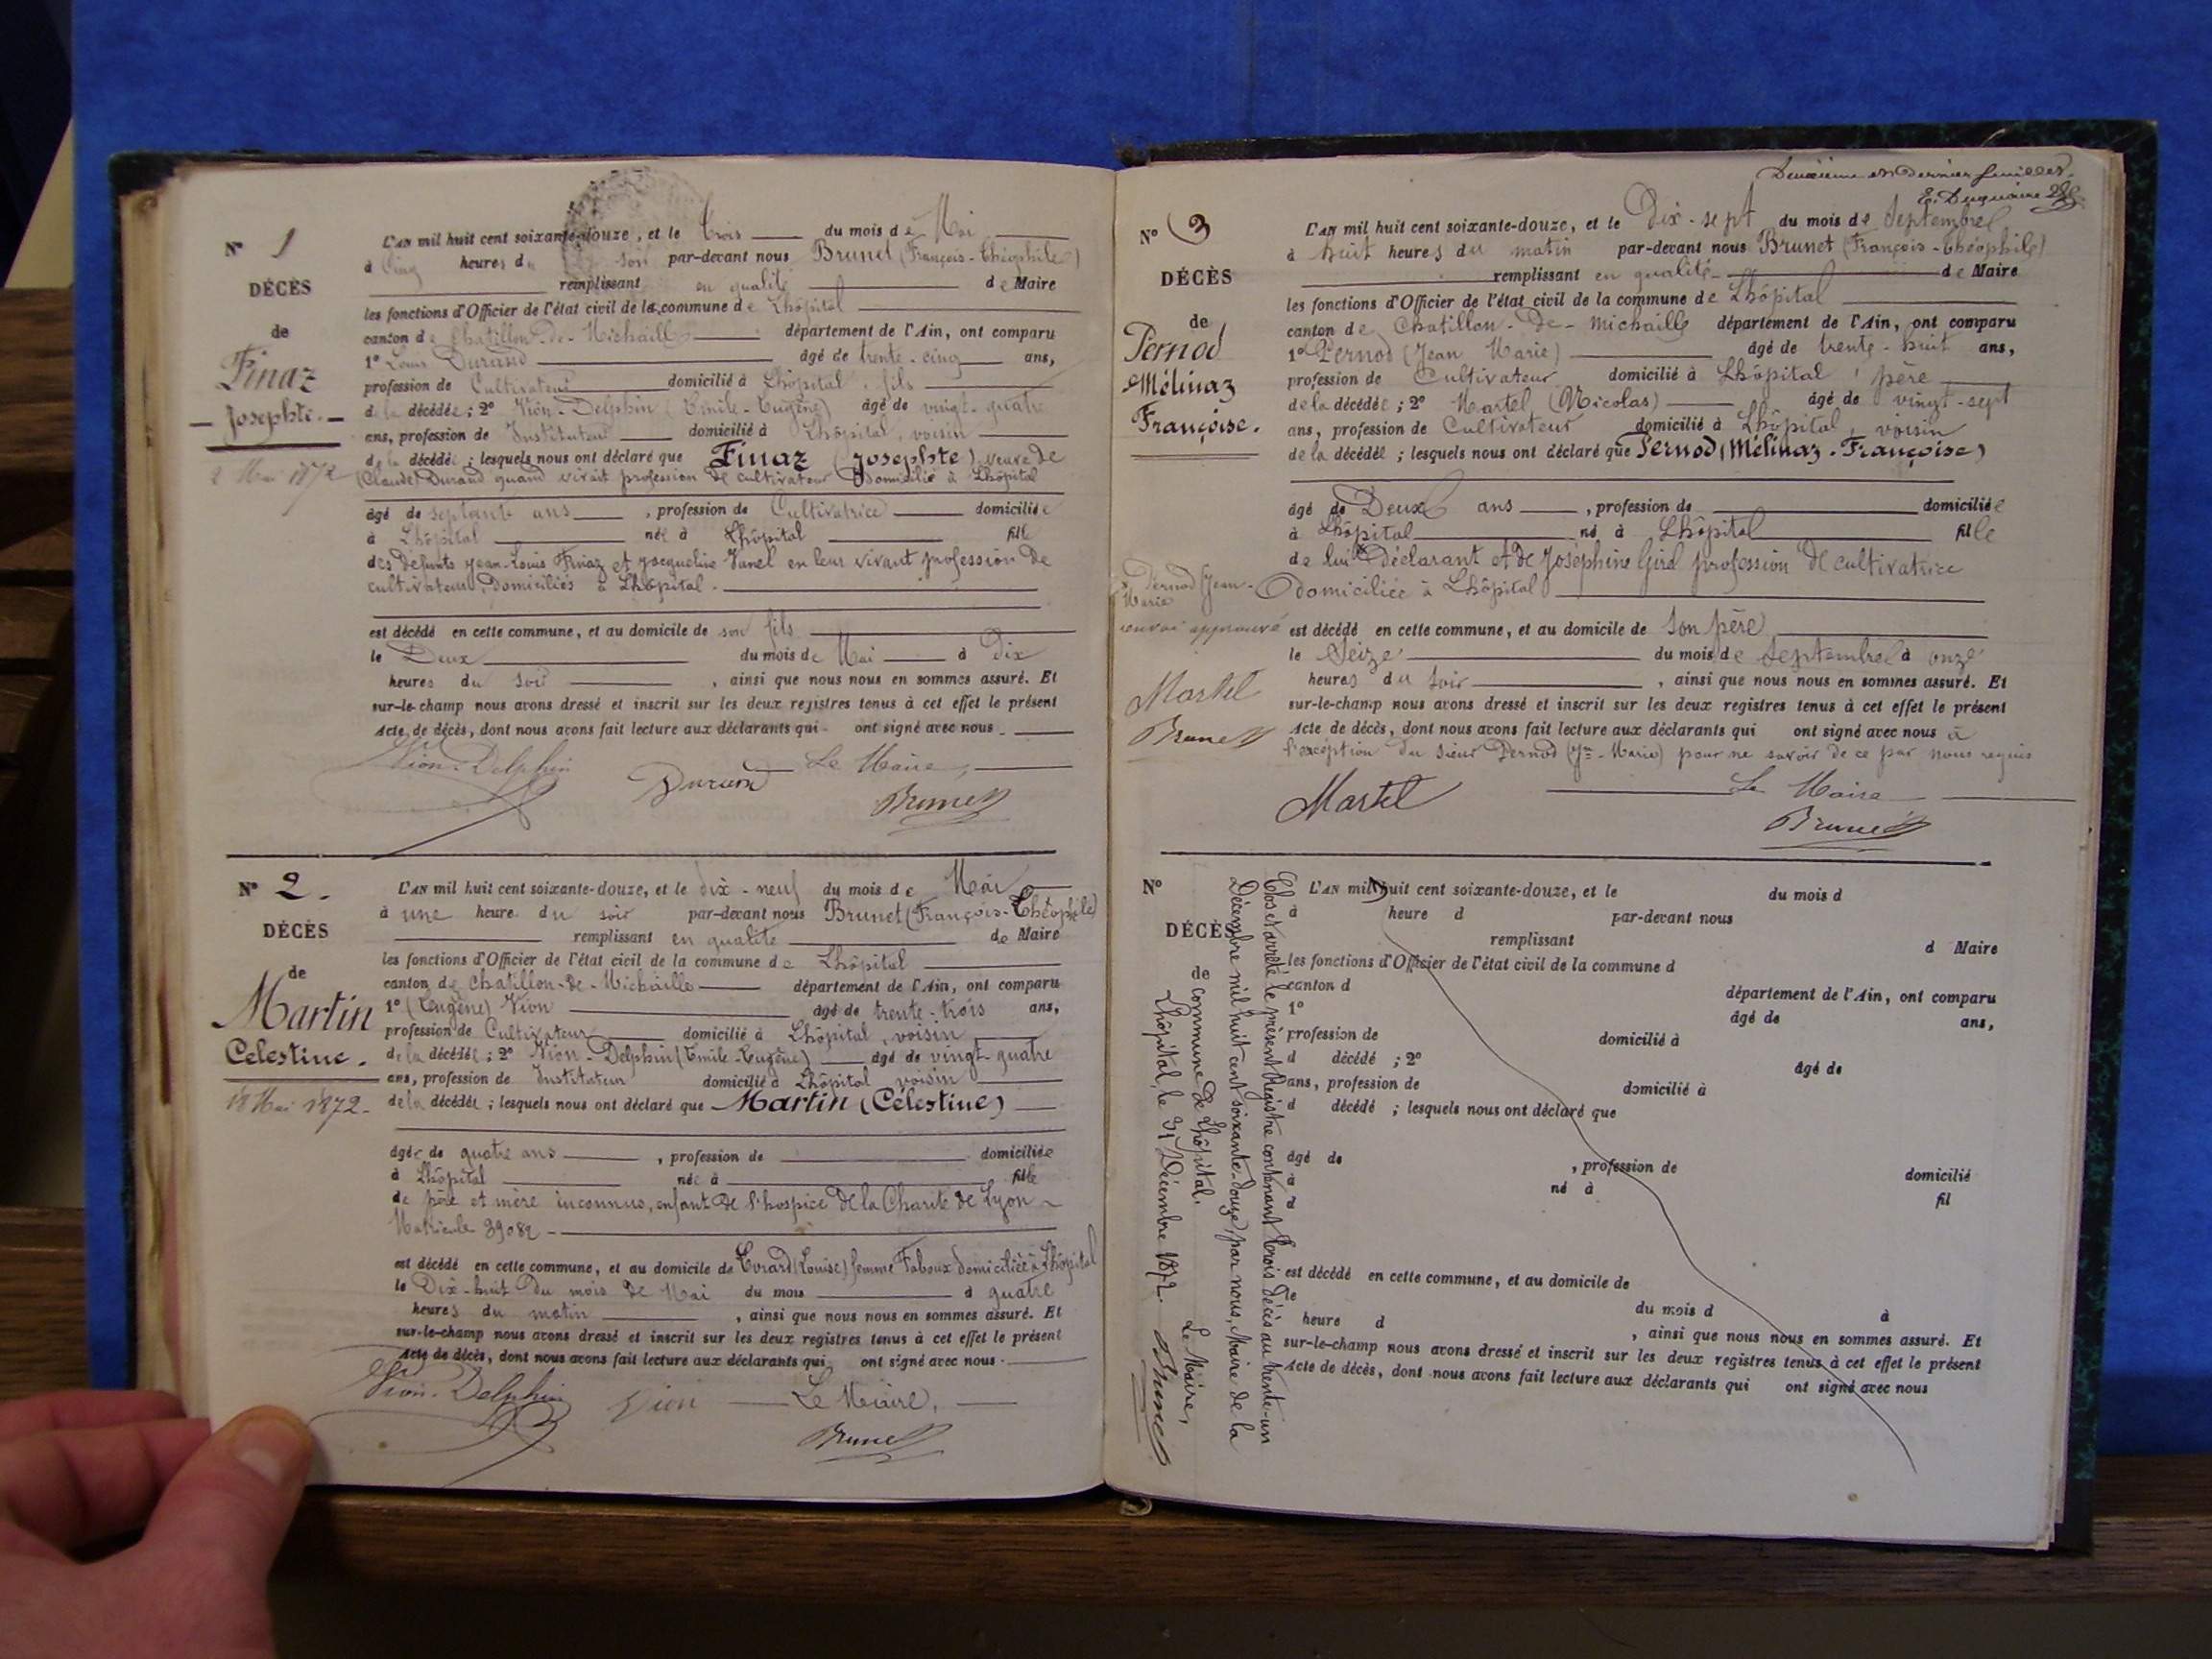 N° 1
DÉCÈS
de
Finaz
Josephte.
2 Mai 1872
L'AN mil huit cent soixante-douze, et le trois du mois de Mai
à Cinq heures du soir par-devant nous Brunet (François-Théophile)
remplissant en qualité de Maire
les fonctions d'Officier de l'état civil de la commune de Lhôpital
canton de Chatillon-de-Michaille département de l'Ain, ont comparu
1° Louis Durand âgé de trente-cinq ans,
profession de Cultivateur domicilié à Lhôpital, fils
de la décédée ; 2° Vion-Delphin (Emile-Eugène) âgé de vingt-quatre
ans, profession de Instituteur domicilié à Lhôpital, voisin
de la décédée ; lesquels nous ont déclaré que Finaz (Josephte) veuve de
(Claude) Durand quand vivait profession de cultivateur domicilié à Lhôpital
âgé de septante ans, profession de Cultivatrice domiciliée
à Lhôpital née à Lhôpital fille
des défunts Jean-Louis Finaz et Jacqueline Vanel en leur vivant profession de
cultivateurs, domiciliés à Lhôpital.
est décédé en cette commune, et au domicile de son fils
le Deux du mois de Mai à Dix
heures du soir, ainsi que nous nous en sommes assuré. Et
sur-le-champ nous avons dressé et inscrit sur les deux registres tenus à cet effet le présent
Acte de décès, dont nous avons fait lecture aux déclarants qui ont signé avec nous.
Vion-Delphin Durand Le Maire,
Brunet
N° 2.
DÉCÈS
de
Martin
Celestine.
18 Mai 1872.
L'AN mil huit cent soixante-douze, et le dix-neuf du mois de Mai
à une heure du soir par-devant nous Brunet (François-Théophile)
remplissant en qualité de Maire
les fonctions d'Officier de l'état civil de la commune de Lhôpital
canton de Chatillon-de-Michaille département de l'Ain, ont comparu
1° (Eugène) Vion âgé de trente-trois ans,
profession de Cultivateur domicilié à Lhôpital, voisin
de la décédée ; 2° Vion-Delphin (Emile-Eugène) âgé de vingt-quatre
ans, profession de Instituteur domicilié à Lhôpital voisin
de la décédée ; lesquels nous ont déclaré que Martin (Célestine)
âgée de quatre ans, profession de domiciliée
à Lhôpital née à fille
de père et mère inconnus, enfant de l'hospice de la Charité de Lyon
Matricule 39082
est décédé en cette commune, et au domicile de (Louise) femme domiciliée à Lhôpital
le Dix-huit du mois de Mai du mois à quatre
heures du matin, ainsi que nous nous en sommes assuré. Et
sur-le-champ nous avons dressé et inscrit sur les deux registres tenus à cet effet le présent
Acte de décès, dont nous avons fait lecture aux déclarants qui ont signé avec nous.
Vion-Delphin Vion Le Maire,
Brunet
Deuxième et Dernier feuillet.
N° 3
DÉCÈS
de
Pernod
Mélinaz
Françoise.
L'AN mil huit cent soixante-douze, et le Dix-sept du mois de Septembre
à huit heures du matin par-devant nous Brunet (François-Théophile)
remplissant en qualité de Maire
les fonctions d'Officier de l'état civil de la commune de Lhôpital
canton de Chatillon-de-Michaille département de l'Ain, ont comparu
1° Pernod (Jean Marie) âgé de trente-huit ans,
profession de Cultivateur domicilié à Lhôpital, père
de la décédée ; 2° Martel (Nicolas) âgé de vingt-sept
ans, profession de Cultivateur domicilié à Lhôpital, voisin
de la décédée ; lesquels nous ont déclaré que Pernod (Mélinaz-Françoise)
âgé de Deux ans, profession de domiciliée
à Lhôpital né à Lhôpital fille
de lui déclarant et de Joséphine Girel profession de cultivatrice
domiciliée à Lhôpital
est décédé en cette commune, et au domicile de son père
le Seize du mois de Septembre à onze
heures du soir, ainsi que nous nous en sommes assuré. Et
sur-le-champ nous avons dressé et inscrit sur les deux registres tenus à cet effet le présent
Acte de décès, dont nous avons fait lecture aux déclarants qui ont signé avec nous à
l'exception du sieur Pernod (Jn-Marie) pour ne savoir de ce par nous requis
Pernod (Jean-
Marie
renvoi approuvé
Martel
Brunet
Martel Le Maire
Brunet
N°
DÉCÈS
de
L'AN mil huit cent soixante-douze, et le du mois d
à heure d par-devant nous
remplissant d Maire
les fonctions d'Officier de l'état civil de la commune d
canton d département de l'Ain, ont comparu
1° âgé de ans,
profession de domicilié à
d décédé ; 2° âgé de
ans, profession de domicilié à
d décédé ; lesquels nous ont déclaré que
âgé de , profession de domicilié
à né à fil
d
est décédé en cette commune, et au domicile de
le du mois d à
heure d , ainsi que nous nous en sommes assuré. Et
sur-le-champ nous avons dressé et inscrit sur les deux registres tenus à cet effet le présent
Acte de décès, dont nous avons fait lecture aux déclarants qui ont signé avec nous
Clos et arrêté le présent Registre contenant trois décès au trente-un
Décembre mil huit cent soixante-douze, par nous, Maire de la
commune de Lhôpital.
Lhôpital, le 31 Décembre 1872. Le Maire,
Brunet